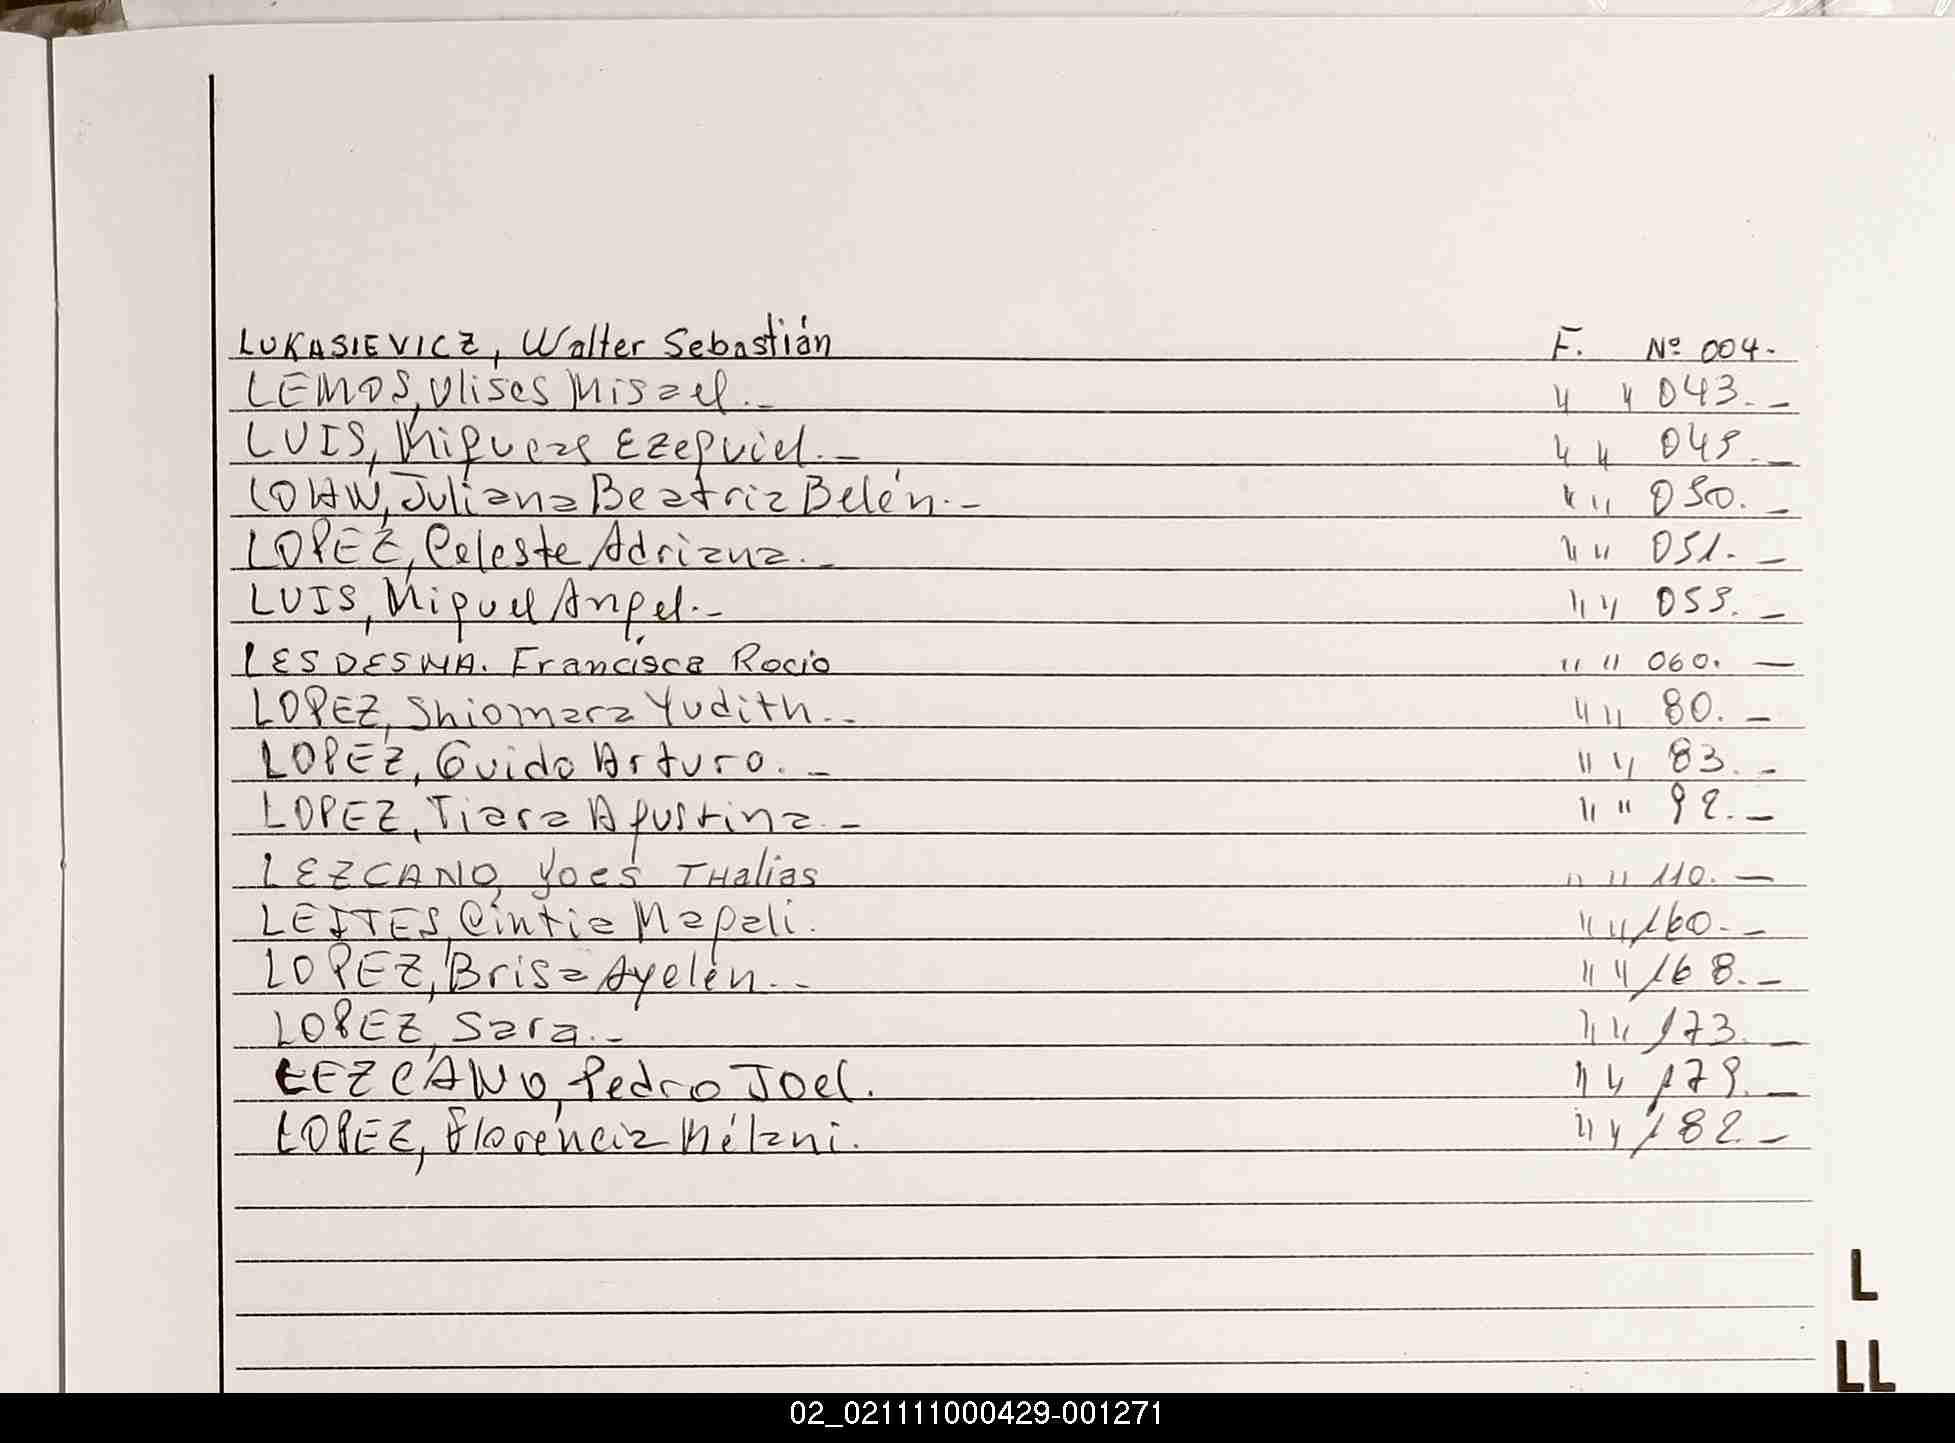 LUKASIEVICZ, Walter Sebastián F. Nº 004.
LEMOS, Ulises Misael.- " " 043.-
LUIS, Miqueas Ezequiel.- " " 049.-
LOHN, Juliana Beatriz Belén.- " " 050.-
LOPEZ, Celeste Adriana.- " " 051.-
LUIS, Miguel Angel.- " " 059.-
LESDESMA. Francisca Rocio " " 060. -
LOPEZ, Shiomara Yudith.- " " 80.-
LOPEZ, Guido Arturo.- " " 83.-
LOPEZ, Tiara Agustina.- " " 92.-
LEZCANO, Yoes THalias " " 110.-
LEITES, Cintia Magali. " " 160.-
LOPEZ, Brisa Ayelén.- " " 168.-
LOPEZ, Sara.- " " 173.-
LEZCANO, Pedro Joel. " " 179.-
LOPEZ, Florencia Mélani. " " 182.-
L
LL
02_021111000429-001271